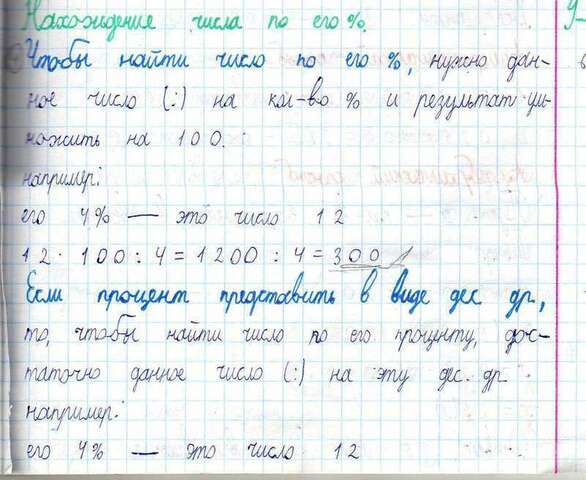 Нахождение числа по его %.
Чтобы найти число по его %, нужно дан-
ное число (:) на кол-во % и результат ум-
ножить на 100.
например:
его 4% — это число 12
12 · 100 : 4 = 1200 : 4 = 300
Если процент представить в виде дес. др,
то, чтобы найти число по его проценту, дос-
таточно данное число (:) на эту дес. др
например:
его 4% — это число 12